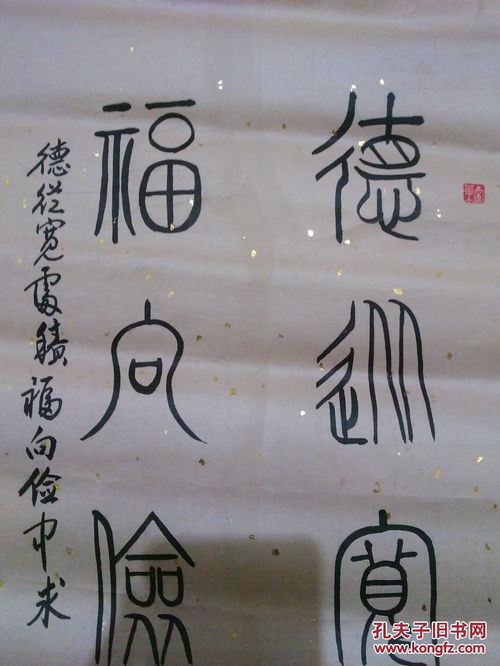 德從寬
福向儉
德從寬處積福向儉中求
孔夫子旧书网
www.kongfz.com